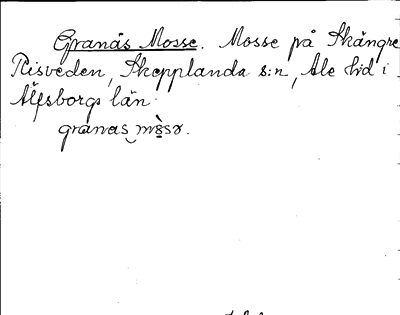 Granäs Mosse. Mosse på Skängre
Risveden, Skepplanda s:n, Ale hd i
Älfsborgs län.
granas mòsə.